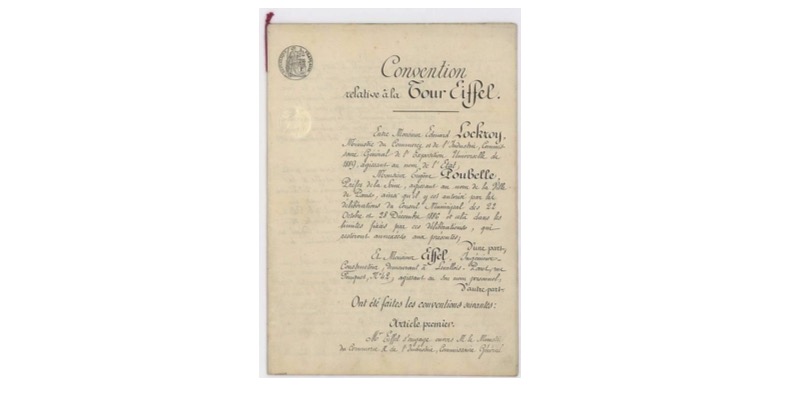 Convention
relative à la Tour Eiffel.
Entre Monsieur Edouard Lockroy,
Ministre du Commerce et de l'Industrie, Commis-
saire Général de l'Exposition Universelle de
1889, agissant au nom de l'Etat,
Monsieur Eugène Poubelle,
Préfet de la Seine, agissant au nom de la Ville
de Paris, ainsi qu'il y est autorisé par les
délibérations du Conseil Municipal des 22
Octobre et Décembre 1886 et cela dans les
limites fixées par ces délibérations, qui
resteront annexées aux présentes,
D'une part,
Et Monsieur Eiffel, Ingénieur-
Constructeur, demeurant à Levallois-Perret, rue
Fouquet, N° 42, agissant en son nom personnel,
D'autre part-
Ont été faites les conventions suivantes:
Article premier.
Mr Eiffel s'engage envers M. le Ministre
du Commerce & de l'Industrie, Commissaire Général